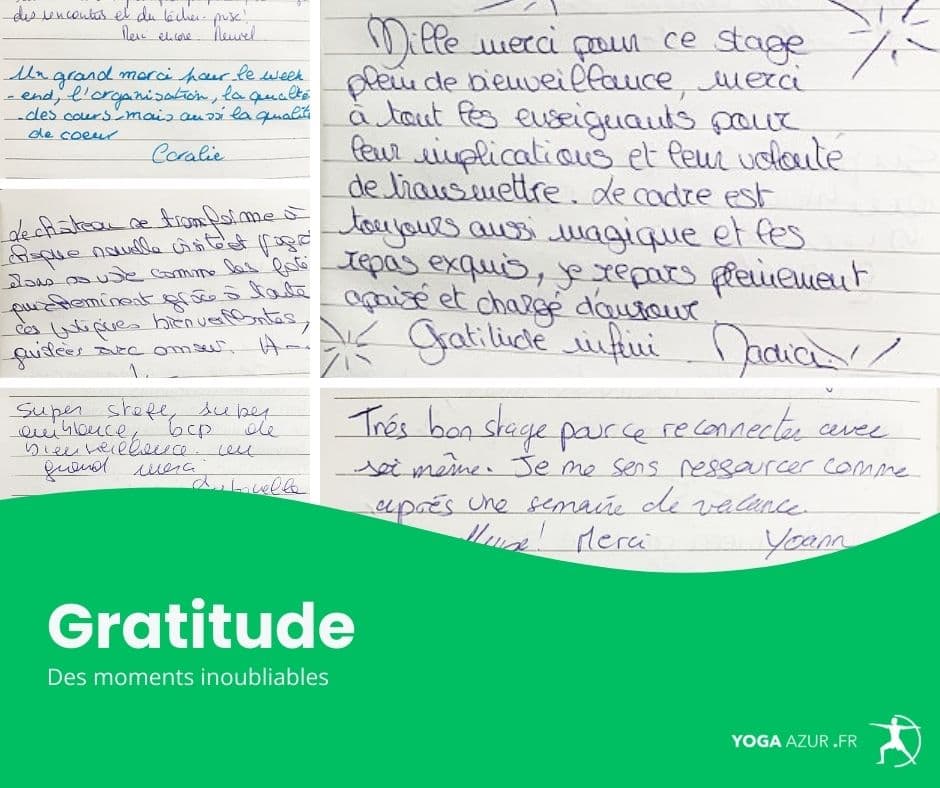 des rencontres et du lâcher-prise!
Merci encore.
Un grand merci pour le week
-end, l'organisation, la qualité
des cours mais aussi la qualité
de coeur
Coralie
Le château se transforme à
chaque nouvelle visite et
comme les
grâce à toute
bienveillantes,
guidées avec amour. A
Super stage, super
ambiance, bcp de
bienveillance. un
grand merci
Mille merci pour ce stage
plein de bienveillance, merci
à tout les enseignants pour
leur implications et leur volonté
de transmettre. Le cadre est
toujours aussi magique et les
repas exquis, je repars pleinement
apaisé et chargé d'amour
Gratitude infini. Nadia
Très bon stage pour ce reconnecter avec
soi même. Je me sens ressourcer comme
après une semaine de vacance.
Merci Yoann
Gratitude
Des moments inoubliables
YOGA AZUR.FR